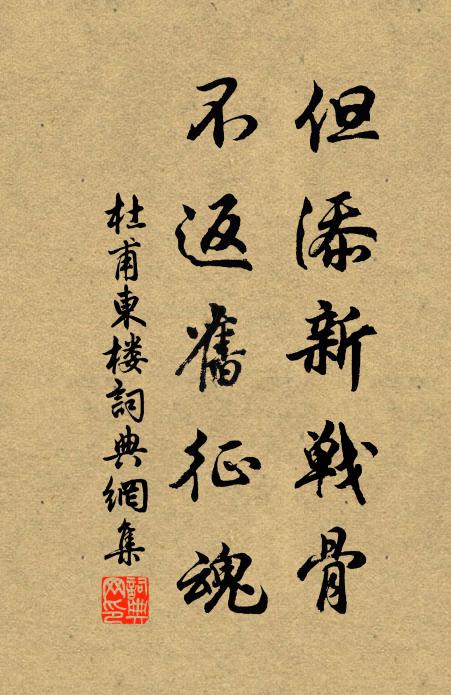 但添新戰骨
不返舊征魂
杜甫東楼詞典網集
詞典网印